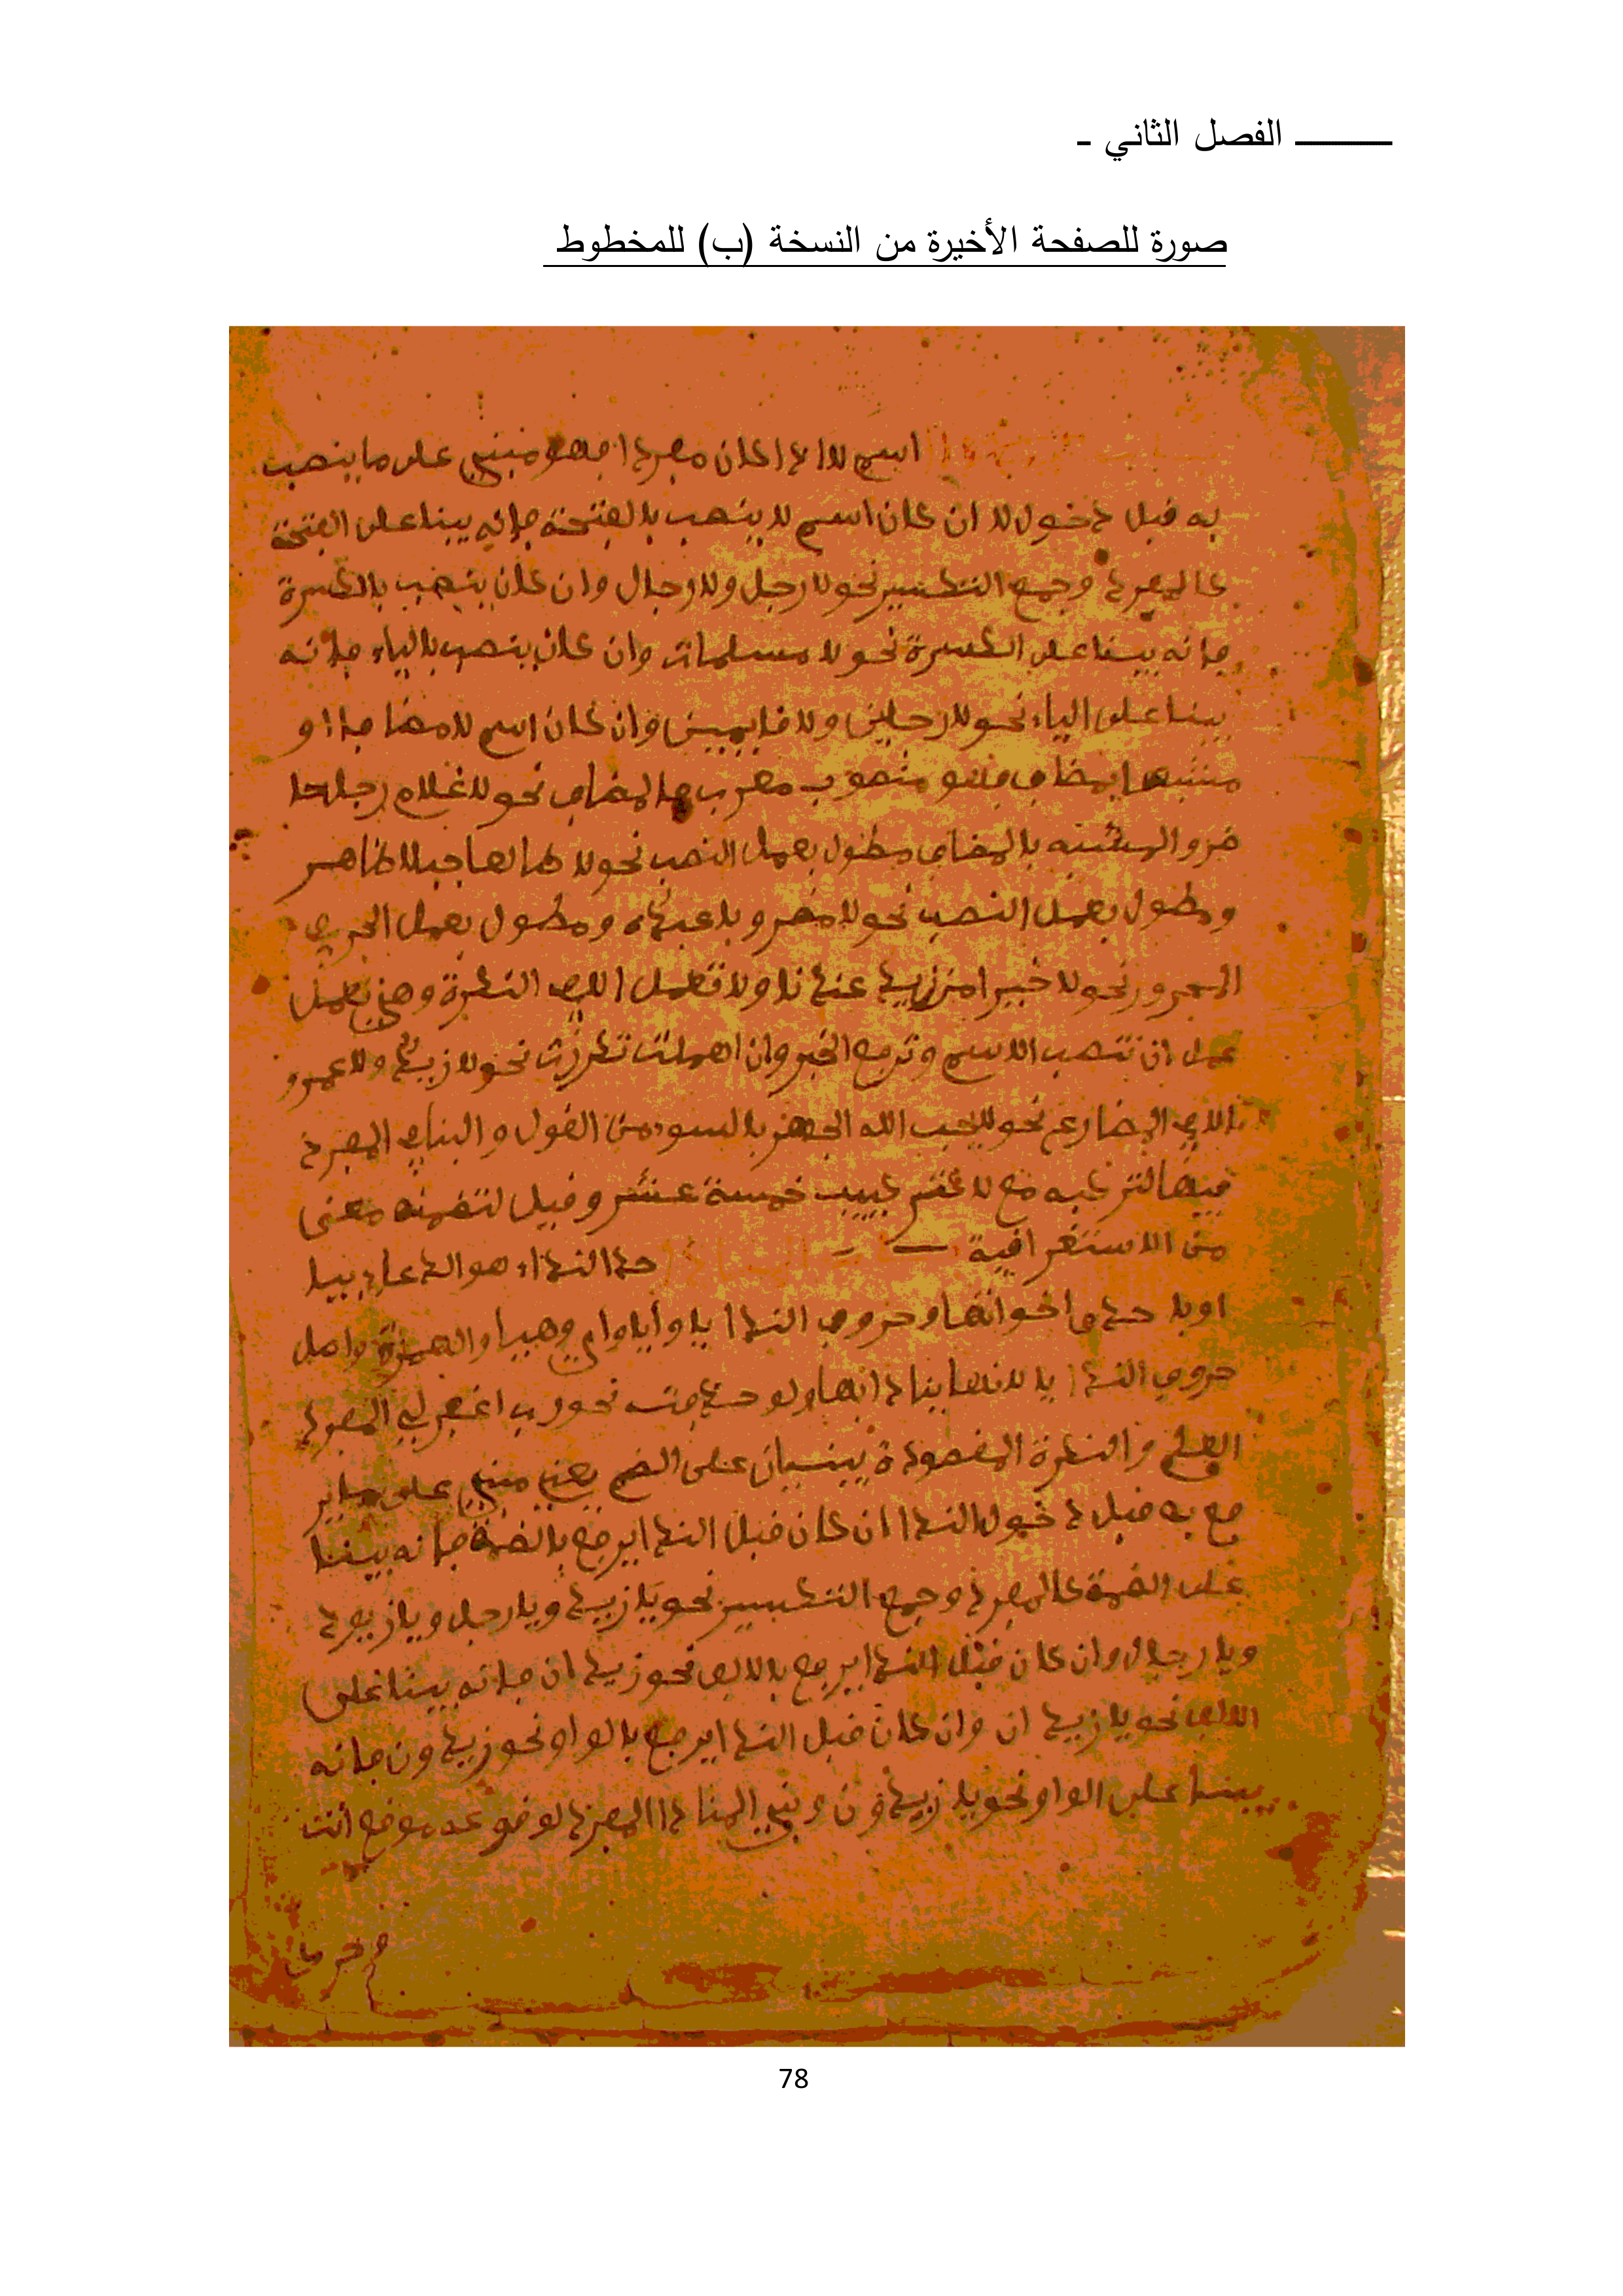 ـــــــ الفصل الثاني ـ
صورة للصفحة الأخيرة من النسخة (ب) للمخطوط
اسم لا اذا كان مفردا فهو مبني على ما ينصب
به قبل دخول لا ان كان اسم لا ينصب بالفتحة فإنه يبنا على الفتحة
كالمفرد وجمع التكسير نحو لا رجل ولا رجال وان كان ينصب بالكسرة
فإنه يبنا على الكسرة نحو لا مسلمات وان كان ينصب بالياء فإنه
يبنا على الياء نحو لا رجلين ولا قايمين وان كان اسم لا مضافا او
مشبها بمضاف فهو منصوب معرب فالمضاف نحو لا غلام رجل حا
ضر والمشبه بالمضاف مطول بعمل النصب نحو لا طالعا جبلا ظاهر
ومطول بعمل النصب نحو لا ومطول بعمل الجر في
المجرور نحو لا خيرا من زيد عندنا ولا تعمل الا في النكرة وهي تعمل
عمل ان تنصب الاسم وترفع الخبر وان اهملت تكررت نحو لا زيد ولا عمرو
المضارع نحو لا يحب الله الجهر بالسوء من القول والبناء في المفرد
فيها لتركبه مع لا كتركيب خمسة عشر وقيل لتضمنه معنى
من الاستغراقية حد النداء هو الدعاء بيا
او باحدى اخواتها وحروف الندا يا وأيا واي وهيا والهمزة واصل
حروف الندا يا لانها ينادا بها ولو حذفت نحو رب اغفر لي المفرد
العلم والنكرة المقصودة يبنيان على الضم يعني مبني على ما ير
فع به قبل دخول الندا ان كان قبل الندا يرفع بالضمة فإنه يبنا
على الضمة كالمفرد وجمع التكسير نحو يا زيد ويا رجل ويا زيود
ويا رجال وان كان قبل الندا يرفع بالالف نحو زيدان فإنه يبنا على
الالف نحو يا زيدان وان كان قبل الندا يرفع بالواو نحو زيدون فإنه
يبنا على الواو نحو يا زيدون وبني المنادا المفرد لوقوعه موقع أنت
78